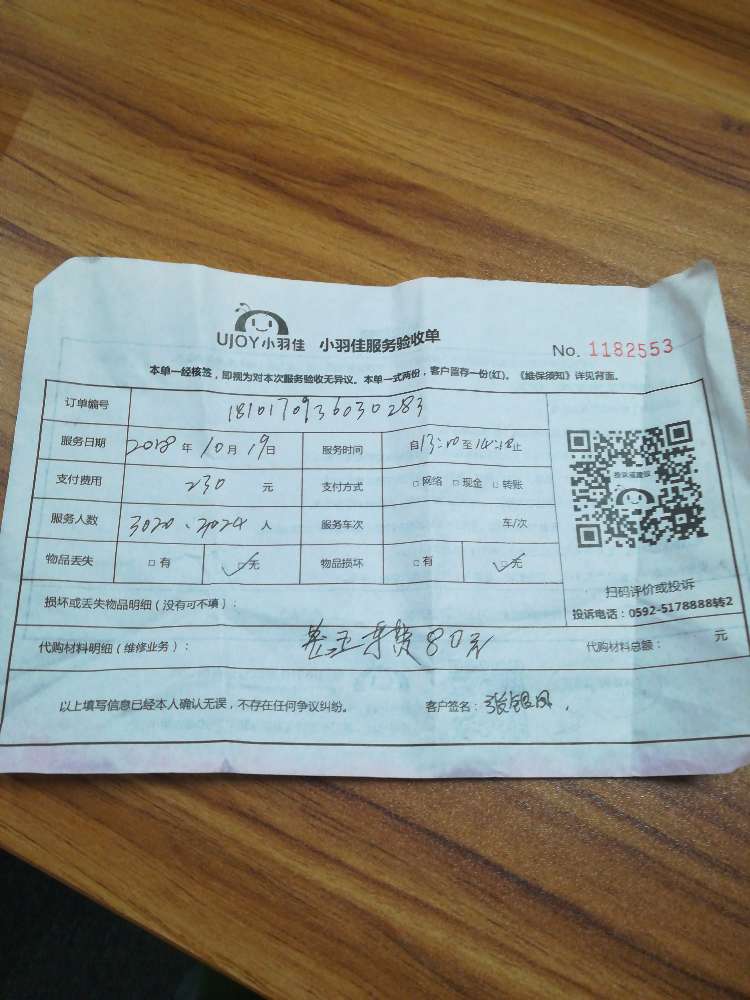 UJOY小羽佳 小羽佳服务验收单
No. 1182553
本单一经核签，即视为对本次服务验收无异议。本单一式两份，客户留存一份(红)。《维保须知》详见背面。
订单编号 1810170936030283
服务日期 2018 年 10 月 19 日 服务时间 自 13:00 至 14:18 止
支付费用 230 元 支付方式 □ 网络 □ 现金 □ 转账
服务人数 3020、2024 人 服务车次 车/次
物品丢失 □ 有 ✓□ 无 物品损坏 □ 有 ✓□ 无
扫码评价或投诉
投诉电话：0592-5178888转2
损坏或丢失物品明细（没有可不填）：
代购材料明细（维修业务）： 费80元 代购材料总额： 元
以上填写信息已经本人确认无误，不存在任何争议纠纷。 客户签名：张银凤